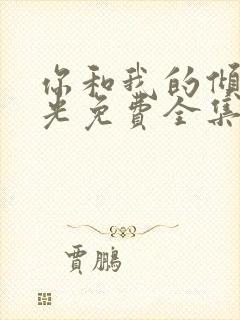 你和我的傾
光免費全集
賈鵬